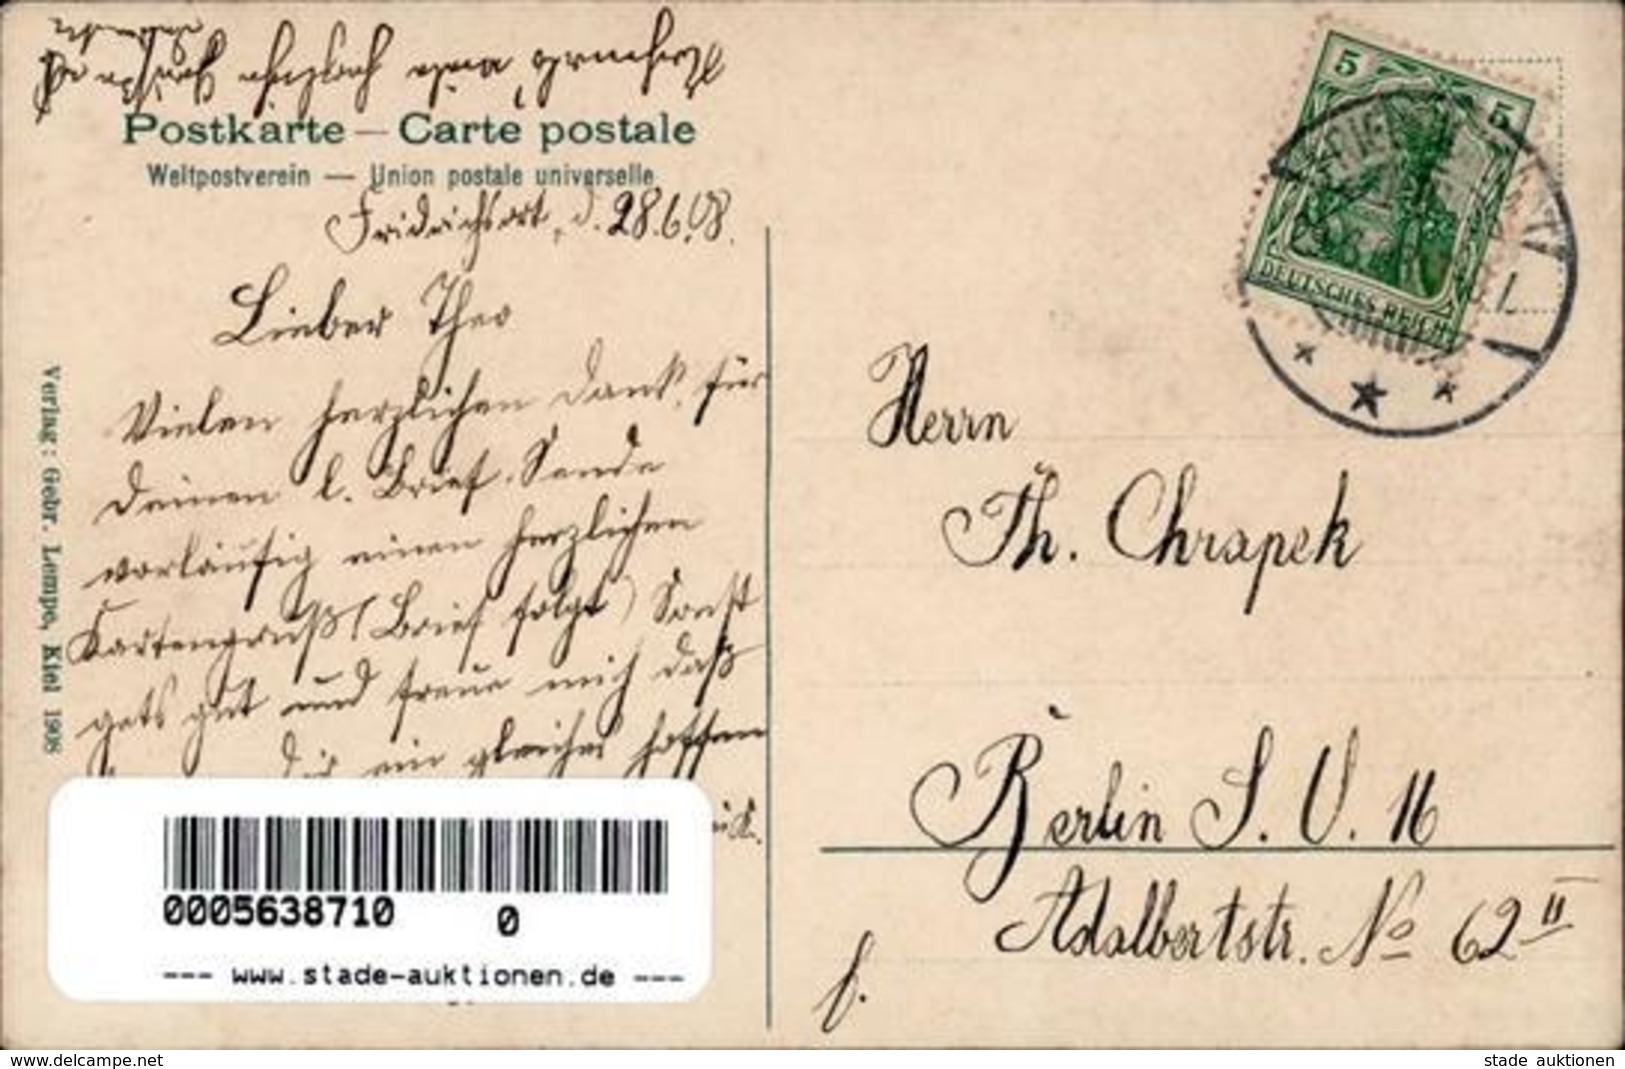 Postkarte — Carte postale
Weltpostverein — Union postale universelle
Fridrichsort, d. 28.6.08.
Lieber Theo
Vielen herzlichen Dank, für
Deinen l. Brief. Sende
vorläufig einen herzlichen
Kartengruß (Brief folgt) Sonst
gets gut und freue mich daß
dir ein gleiches hoffen
Verlag: Gebr. Lempo, Kiel 1908
5
5
DEUTSCHES REICH
Herrn
Th. Chrapek
Berlin S. O. 16
Adalbertstr. No 62 II
f.
0005638710 0
--- www.stade-auktionen.de ---
www.delcampe.net
stade auktionen